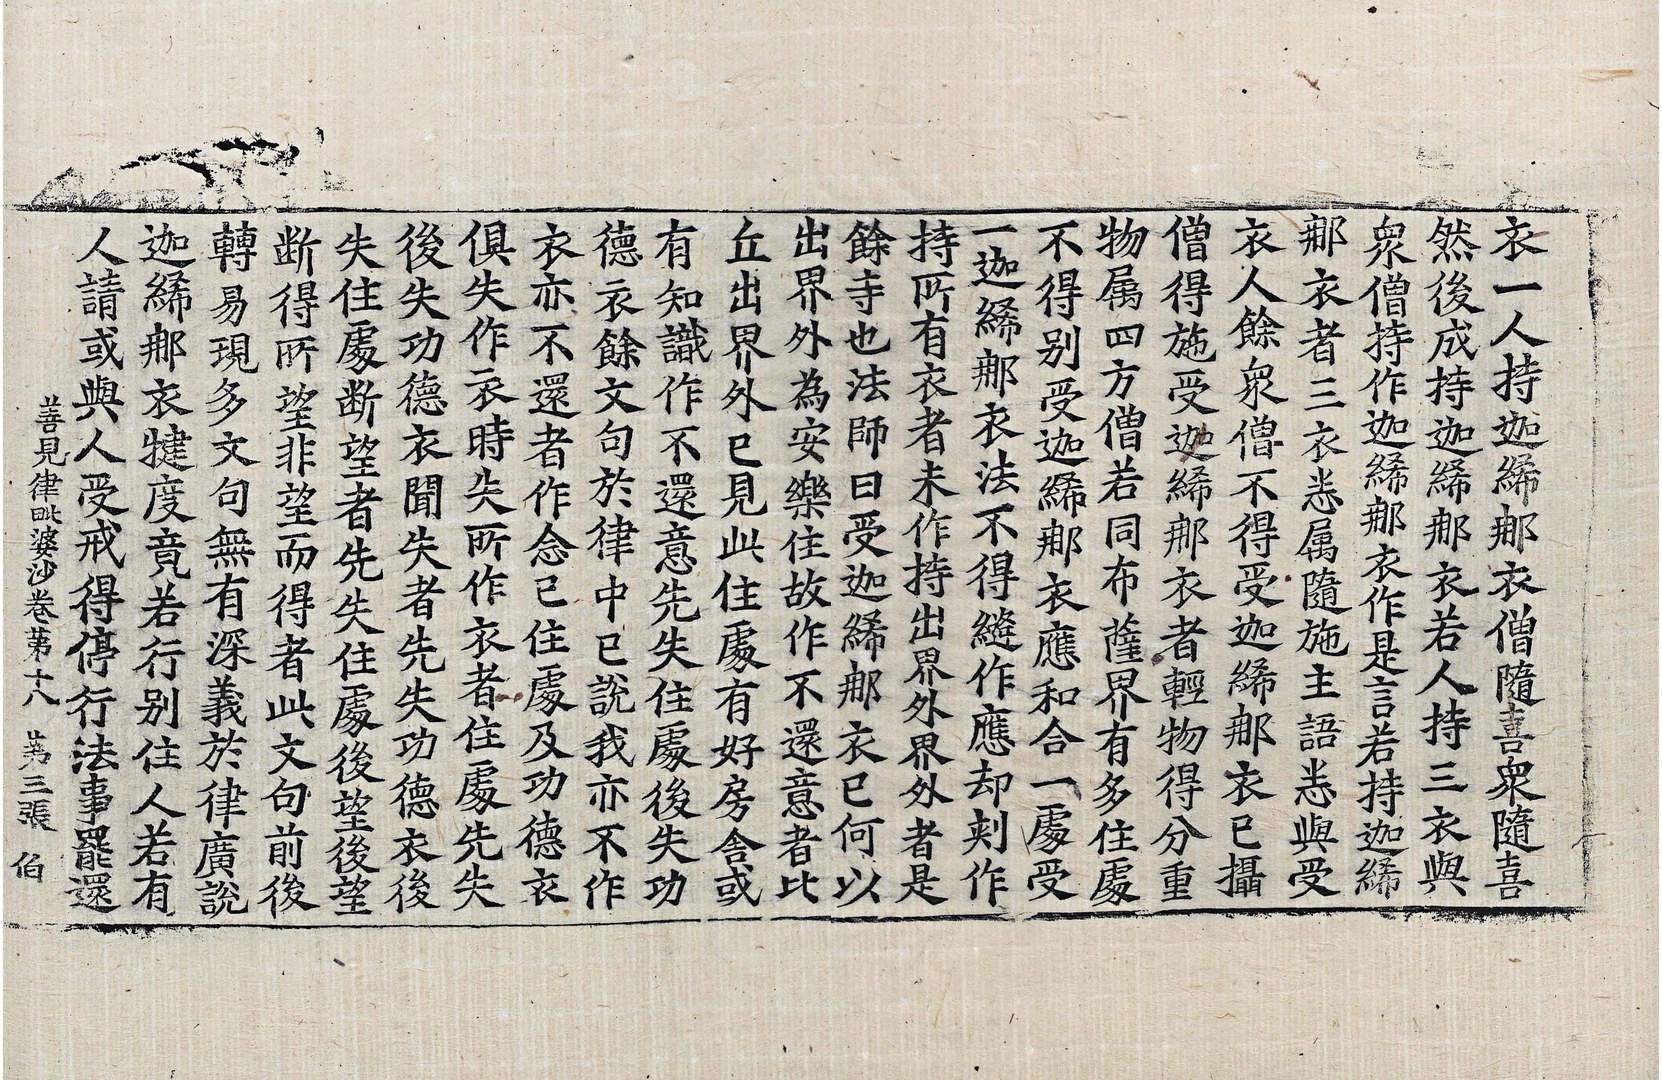 衣一人持迦絺那衣僧隨喜衆隨喜
然後成持迦絺那衣若人持三衣與
衆僧持作迦絺那衣作是言若持迦絺
那衣者三衣悉属隨施主語悉與受
衣人餘衆僧不得受迦絺那衣已攝
僧得施受迦絺那衣者輕物得分重
物属四方僧若同布薩界有多住處
不得别受迦絺那衣應和合一處受
一迦絺那衣法不得縫作應却刾作
持所有衣者未作持出界外界外者是
餘寺也法師曰受迦絺那衣已何以
出界外為安樂住故作不還意者比
丘出界外已見此住處有好房舎或
有知識作不還意先失住處後失功
德衣餘文句於律中已說我亦不作
衣亦不還者作念已住處及功德衣
俱失作衣時失所作衣者住處先失
後失功德衣聞失者先失功德衣後
失住處断望者先失住處後望後望
断得所望非望而得者此文句前後
轉易現多文句無有深義於律廣說
迦絺那衣揵度竟若行别住人若有
人請或與人受戒得停行法事罷還
善見律毗婆沙卷苐十八　苐三張　伯